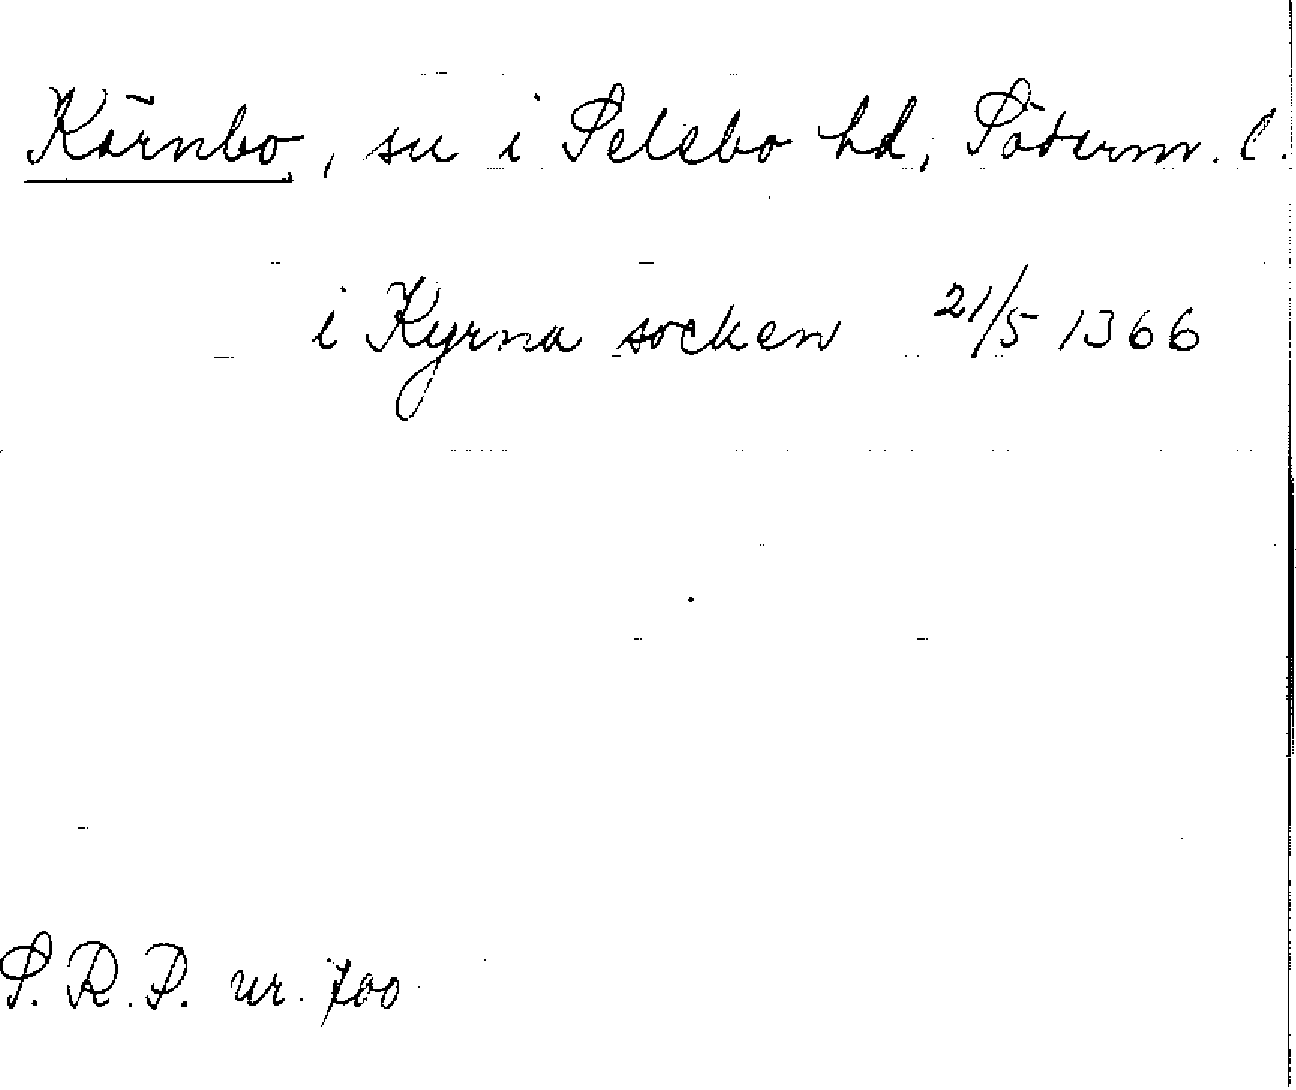 Kärnbo, sn i Selebo hd, Söderm. l.
i Kyrna socken 21/5 1366
S. R. P. nr. 700